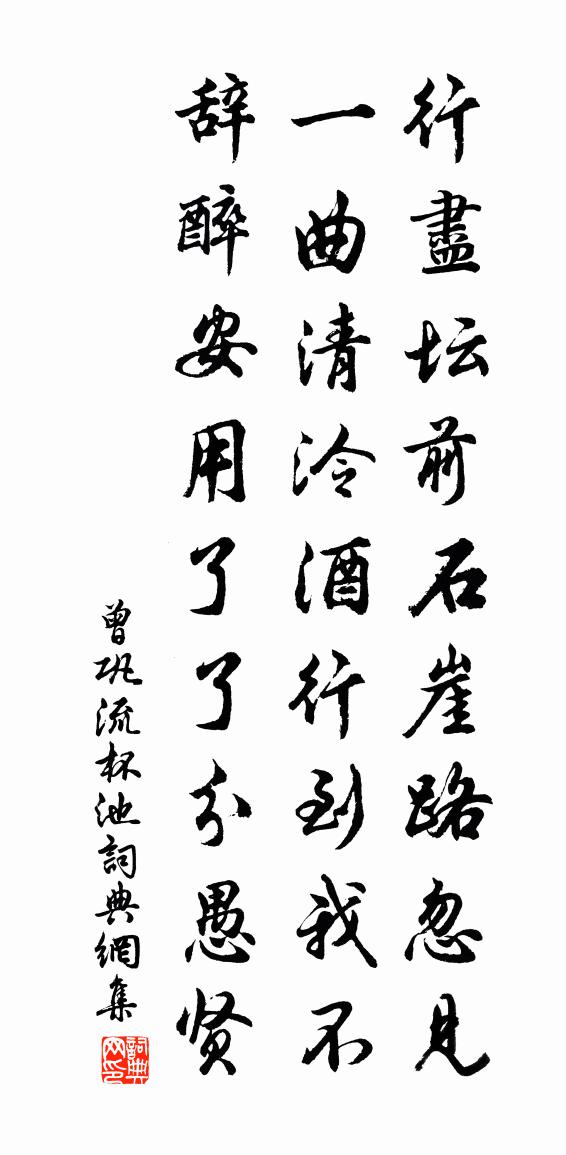 行盡坛前石崖路忽見
一曲清泠酒行到我不
辞醉安用了了分愚贤
曾巩流杯池詞典網集
詞典网印